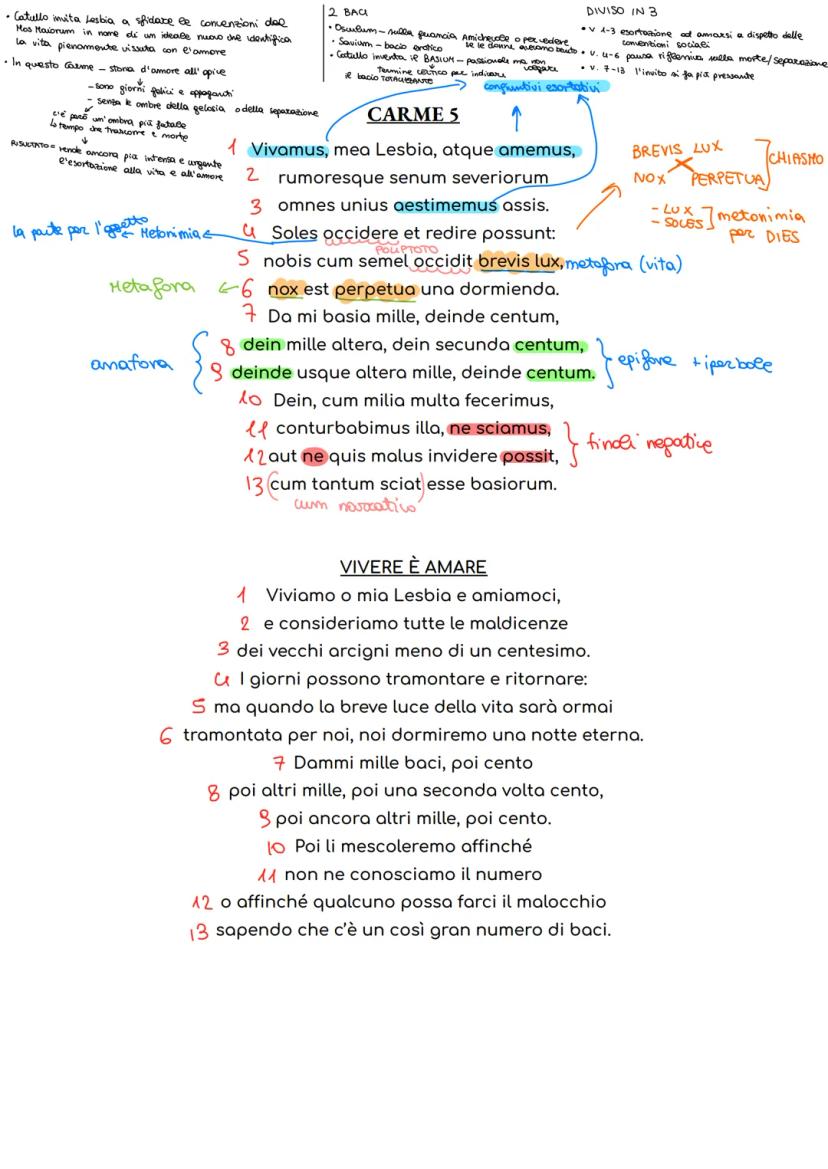 • Catullo invita Lesbia a sfidare le convenzioni del
Mos Maiorum in nome di un ideale nuovo che identifica
la vita pienamente vissuta con l'amore
• In questo Carme – storia d'amore all'apice
– sono giorni felici e appaganti
– senza le ombre della gelosia o della separazione
c'è però un'ombra più fatale
↳ tempo che trascorre e morte
RISULTATO = rende ancora più intensa e urgente
l'esortazione alla vita e all'amore
2 BACI
• Osculum – sulla guancia Amichevole o per vedere
se le donne avevano bevuto
• Savium – bacio erotico
• Catullo inventa il BASIUM – passionale ma non
volgare
termine celtico per indicare
il bacio
DIVISO IN 3
• v 1-3 esortazione ad amarsi a dispetto delle
convenzioni sociali
• v. 4-6 pausa riflessiva sulla morte/separazione
• v. 7-13 l'invito si fa più pressante
congiuntivi esortativi
CARME 5
1 Vivamus, mea Lesbia, atque amemus,
2 rumoresque senum severiorum
3 omnes unius aestimemus assis.
4 Soles occidere et redire possunt:
POLIPTOTO
5 nobis cum semel occidit brevis lux, metafora (vita)
6 nox est perpetua una dormienda.
7 Da mi basia mille, deinde centum,
8 dein mille altera, dein secunda centum,
9 deinde usque altera mille, deinde centum.
10 Dein, cum milia multa fecerimus,
11 conturbabimus illa, ne sciamus,
12 aut ne quis malus invidere possit,
13 (cum tantum sciat) esse basiorum.
cum narrativo
BREVIS LUX
NOX PERPETUA
CHIASMO
– LUX
– SOLES
metonimia
per DIES
la parte per l'oggetto ← Metonimia
Metafora
anafora
epifore + iperbole
finali negative
VIVERE È AMARE
1 Viviamo o mia Lesbia e amiamoci,
2 e consideriamo tutte le maldicenze
3 dei vecchi arcigni meno di un centesimo.
4 I giorni possono tramontare e ritornare:
5 ma quando la breve luce della vita sarà ormai
6 tramontata per noi, noi dormiremo una notte eterna.
7 Dammi mille baci, poi cento
8 poi altri mille, poi una seconda volta cento,
9 poi ancora altri mille, poi cento.
10 Poi li mescoleremo affinché
11 non ne conosciamo il numero
12 o affinché qualcuno possa farci il malocchio
13 sapendo che c'è un così gran numero di baci.